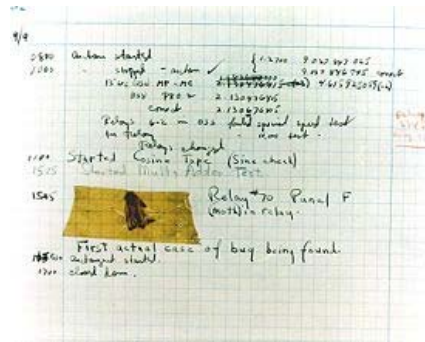 9/9
0800 Antan started
1000 " stopped - antan ✓ { 1.2700 9.037 847 025
9.037 846 795 correct
13"UC (032) MP-MC 4.615925059(-2)
033 PRO 2 2.130476415
correct 2.130676415
Relays 6-2 in 033 failed special speed test
in relay " test.
Relays changed
1100 Started Cosine Tape (Sine check)
1525 Started Multi Adder Test.
1545 Relay #70 Panel F
(moth) in relay.
First actual case of bug being found.
antangent started.
1700 closed down.